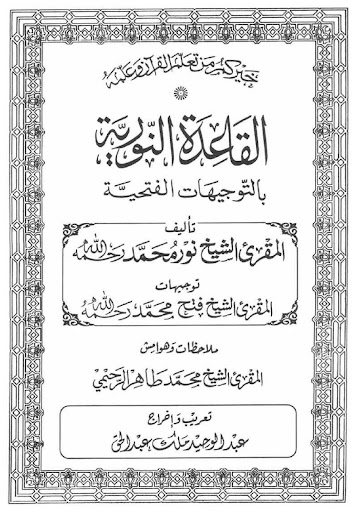 خيركم من تعلم القرآن وعلمه
القاعدة النورية
بالتوجيهات الفتحية
تأليف
المقرئ الشيخ نور محمد رحمه الله
توجيهات
المقرئ الشيخ فتح محمد رحمه الله
ملاحظات وهوامش
المقرئ الشيخ محمد طاهر الرحيمي
تعريب وإخراج
عبد الوحيد ملك عبد الحق